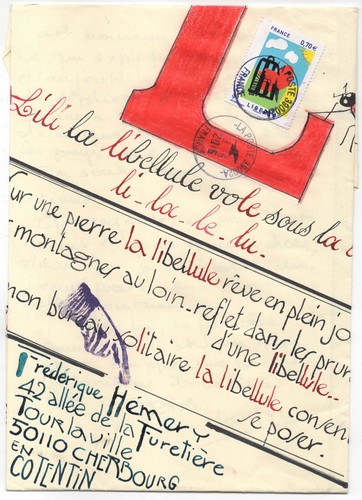 L
FRANCE 0,70€
LA POSTE
FRANCE
Lili la libellule vole sous la
li - la - le - lu -
Sur une pierre la libellule rêve en plein jo
montagnes au loin.. reflet dans les prun
d'une libellule..
mon bureau. solitaire la libellule convien
se poser.
Frédérique Hémery
42 allée de la Furetière
Tourlaville
50110 CHERBOURG
EN
COTENTIN